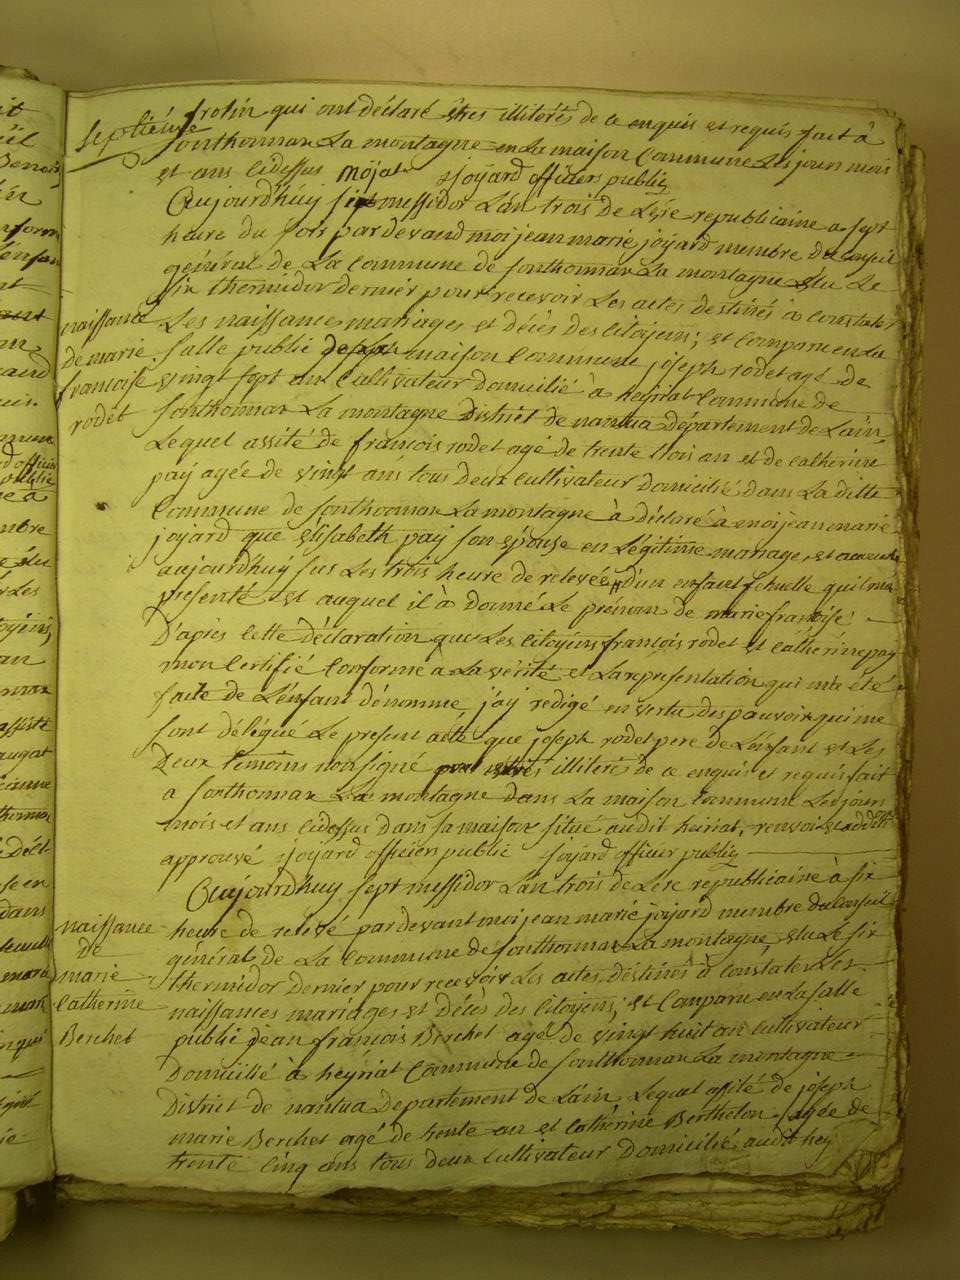 septième
frotin qui ont déclaré êtres illiterés de ce enquis et requis fait à
Sonthonnax La montagne en La maison Commune Les jour mois
et ans cidessus Mojat joÿard officiers public
Aujourdhuy sept messidor Lan trois de Lère republicaine a sept
heure du soir pardevand moi jean marie joÿard membre du Conseil
général de La Commune de Sonthonnax La montagne élu Le
six thermidor dernier pour recevoir Les actes destinés à Constater
Les naissance mariages et décès des Citoyens; et Comparu en La
salle public de la maison Commune joseph rodet agé de
vingt sept an Cultivateur domicilié à heyriat Commune de
Sonthonnax La montagne District de nantua département de Lain
Lequel assité de françois rodet agé de trente trois an et de Catherine
paÿ agée de vingt ans tous deux Cultivateur domicilié dans La ditte
Commune de Sonthonnax La montagne à déclaré à moi jean marie
joÿard que Elisabeth paÿ son épouse en Légitime mariage, et accouché
aujourdhuy sus Les trois heure de relevée, d'un enfant femelle qui ma
présenté et auquel il à Donné Le prénom de marie françoise
D'après Cette déclaration que Les Citoyens françois rodet et Catherine paÿ
mon Certifié Conforme a La vérité et La représentation qui ma été
faite de L'enfant dénommé, j'ay redigé en vertu des pouvoir qui me
sont délégué Le present acte que joseph rodet pere de L'enfant et Les
Deux temoins non signé pour êtres illiteré de ce enquis et requis fait
a Sonthonnax La montagne dans La maison Commune Les jours
mois et ans Cidessus dans sa maison situé audit heiriat, renvoi
approuvé joÿard officier public joÿard officier public
Aujourdhuy sept messidor Lan trois de Lère republicaine à six
heure de relevé pardevant moi jean marie joÿard membre du Conseil
général de La Commune de Sonthonnax La montagne, élu Le six
thermidor dernier pour recevoir Les actes destinés à Constater Les
naissances mariages et décès des Citoyens; et Comparu en La Salle
public jean françois Berchet agé de vingt huit an Cultivateur
Domicilié à heyriat Commune de Sonthonnax La montagne
District de nantua Departement de Lain Lequel assité de joseph
marie Berchet agé de trente an et Catherine Berthelon agée de
trente Cinq ans tous deux Cultivateur Domicilié audit hey
naissance
de marie
françoise
rodet
naissance
De
marie
Catherine
Berchet